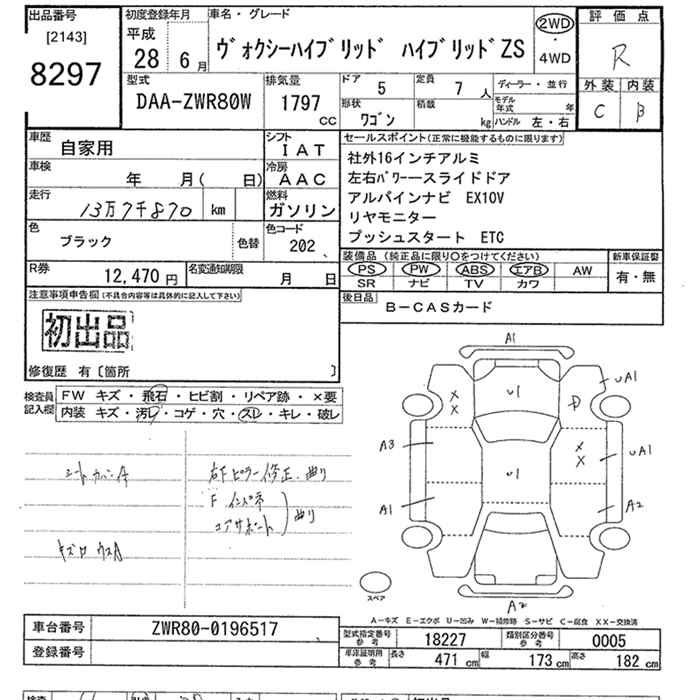 出品番号
[2143]
8297
初度登録年月
平成
28 6月
車名・グレード
ヴォクシーハイブリッド ハイブリッドZS
2WD
・
4WD
評価点
R
外装 内装
C B
型式
DAA-ZWR80W
排気量
1797
cc
ドア 5
定員 7人
形状 ワゴン
積載 kg
ディーラー・並行
モデル年式 年
ハンドル 左・右
車歴
自家用
シフト
IAT
車検
年 月( 日)
冷房
AAC
走行
13万7千870 km
燃料
ガソリン
色
ブラック
色替
色コード
202
セールスポイント(正常に機能するものに限ります)
社外16インチアルミ
左右パワースライドドア
アルパインナビ EX10V
リヤモニター
プッシュスタート ETC
装備品(純正品に限り○をつけてください)
PS PW ABS エアB AW
SR ナビ TV カワ
新車保証書
有・無
R券
12,470円
名変通知期限
月 日
後日品
B-CASカード
注意事項申告欄(不具合内容等は具体的に記入して下さい)
初出品
修復歴 有〔箇所 〕
検査員
記入欄
FW キズ・飛石・ヒビ割・リペア跡・×要
内装 キズ・汚レ・コゲ・穴・スレ・キレ・破レ
シートカバーA
右Fピラー修正、曲り
Fインパネ
コアサポート
曲り
A1
U1
UA1
A3
U1
UA1
A1
A2
A2
X
X
X
X
スペア
A-キズ E-エクボ U-凹み W-補修跡 S-サビ C-腐食 XX-交換済
車台番号
ZWR80-0196517
登録番号
型式指定番号
参考
18227
類別区分番号
参考
0005
車庫証明用
参考
長さ 471cm
幅 173cm
高さ 182cm